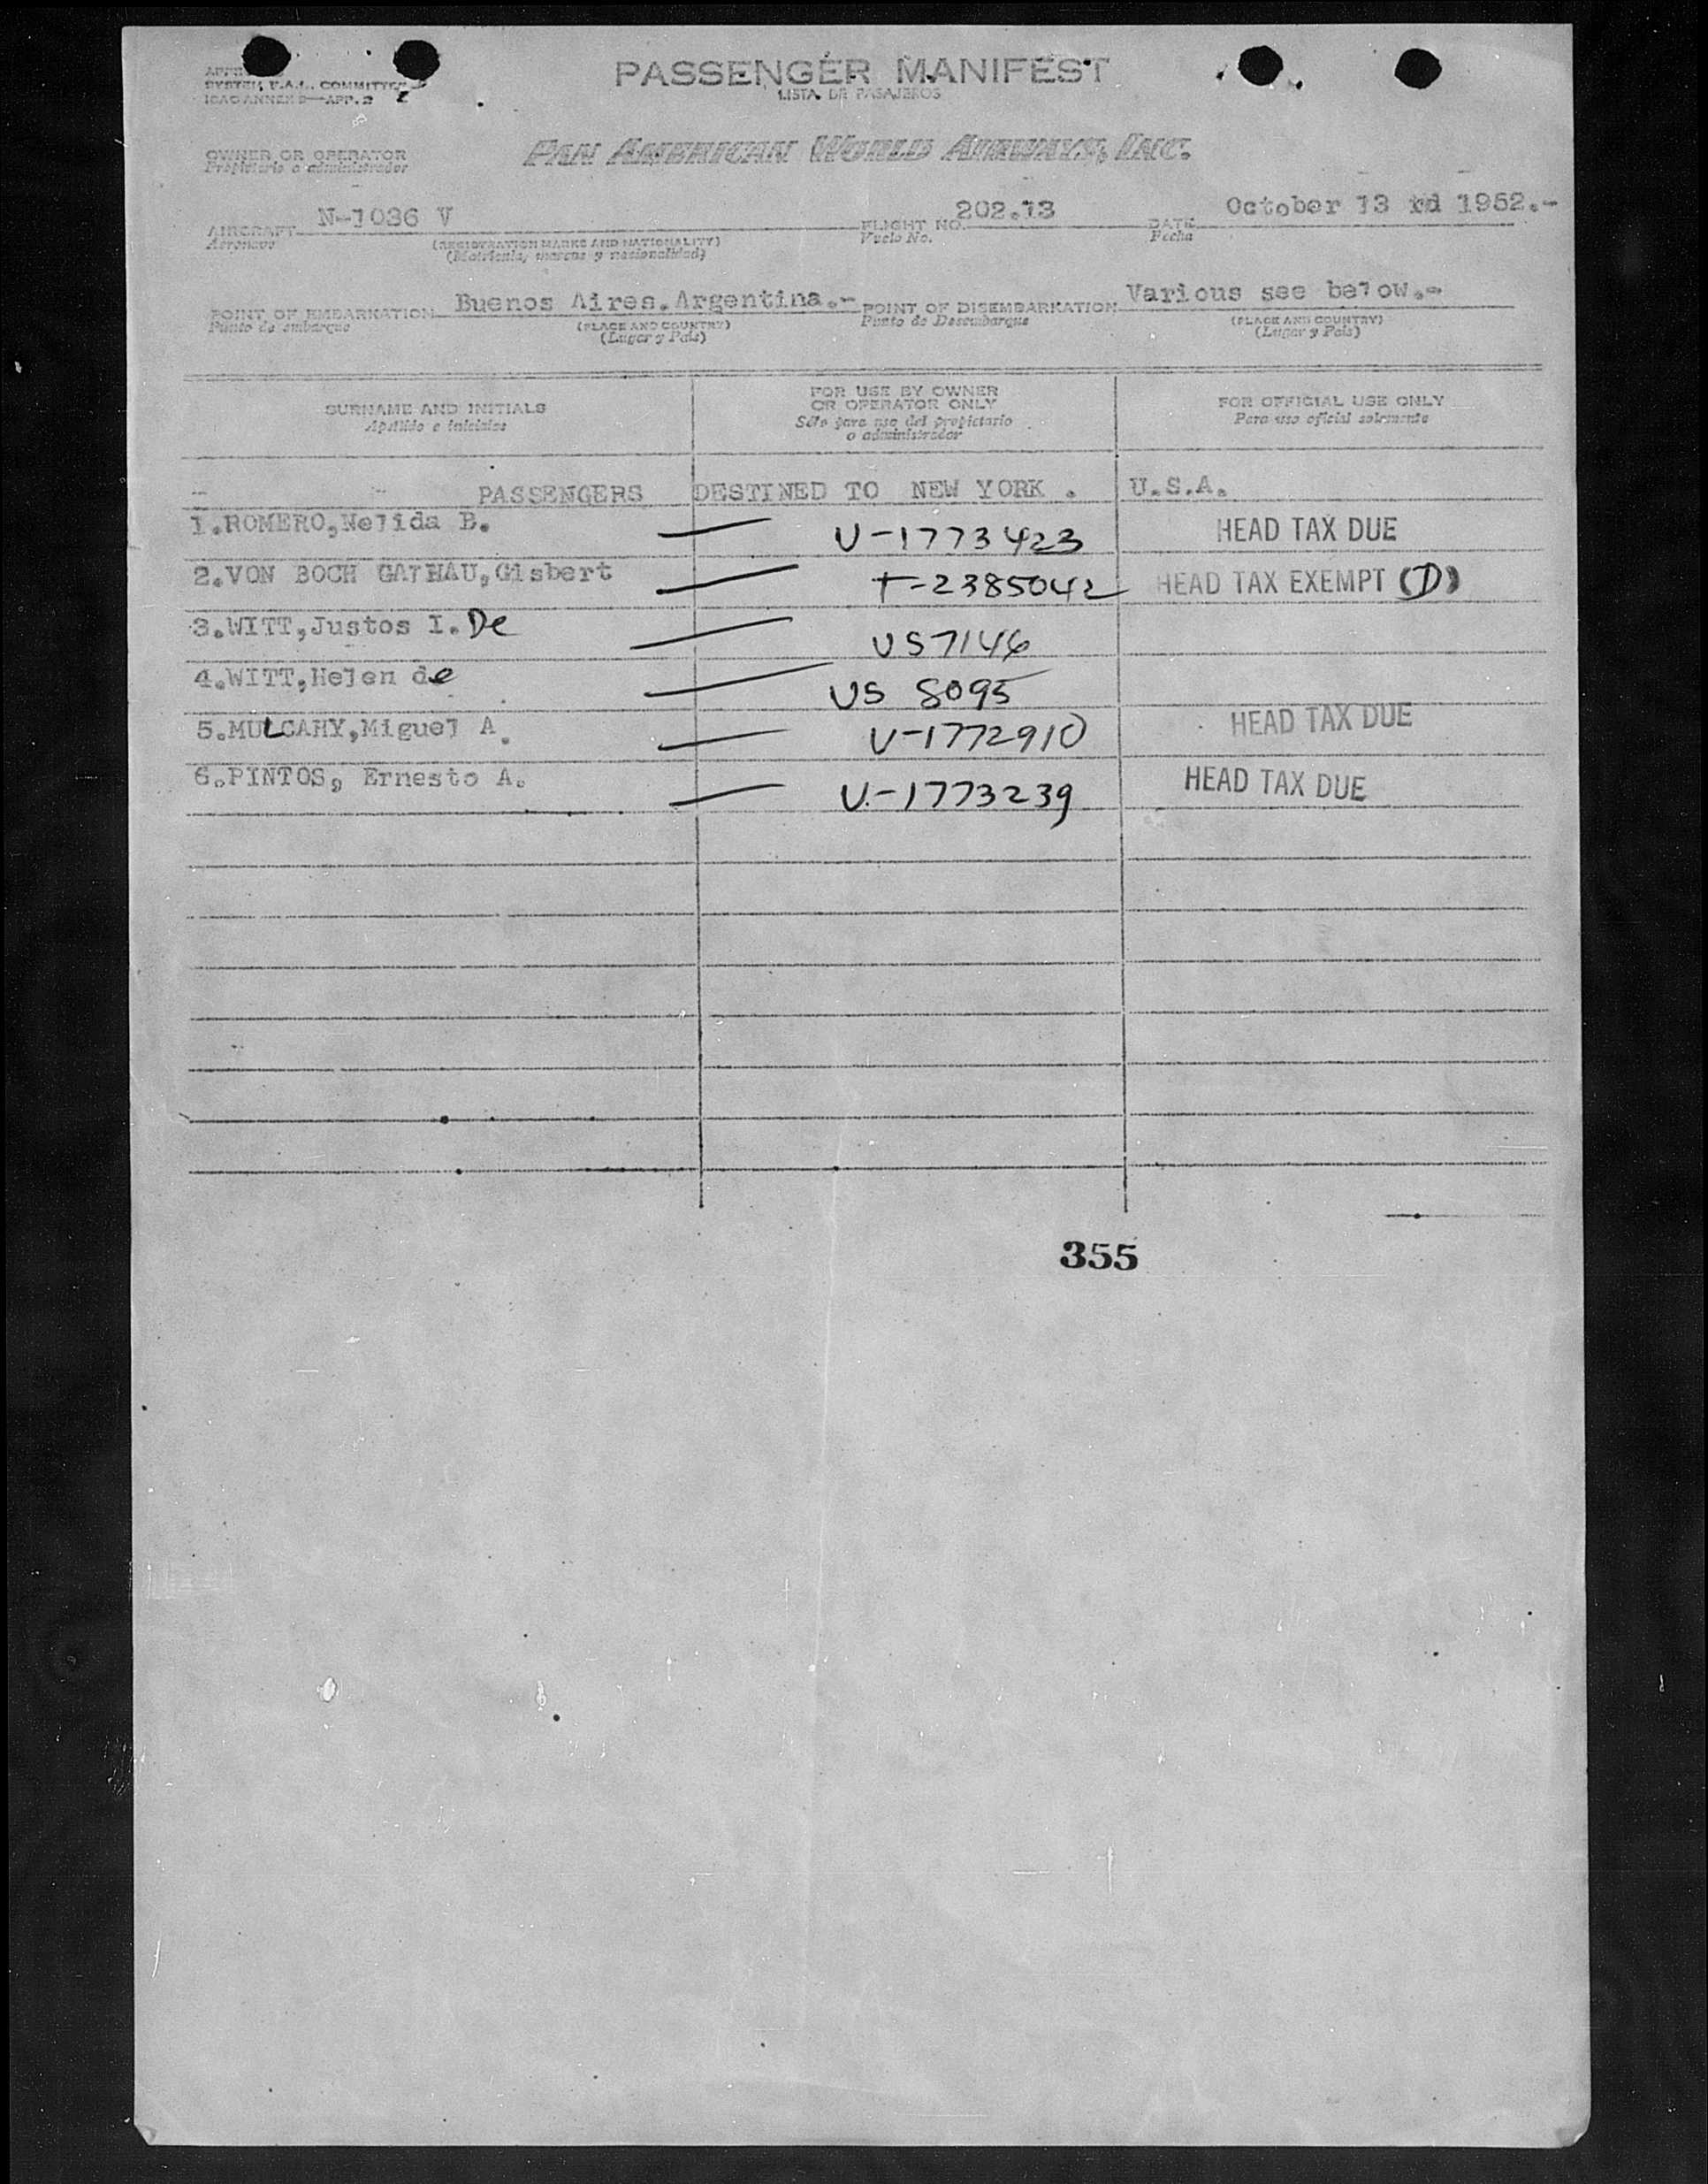 PASSENGER MANIFEST
LISTA DE PASAJEROS
SYSTEM F.A.L. COMMITTEE
ICAO ANNEX 9—APP. 2
OWNER OR OPERATOR
Propietario o administrador
PAN AMERICAN WORLD AIRWAYS, INC.
AIRCRAFT N-1036 V FLIGHT NO. 202.13 DATE October 13 rd 1952.-
Aeronave (REGISTRATION MARKS AND NATIONALITY) Vuelo No. Fecha
(Matricula, marcas y nacionalidad)
POINT OF EMBARKATION Buenos Aires.Argentina.- POINT OF DISEMBARKATION Various see below.-
Punto de embarque (PLACE AND COUNTRY) Punto de Desembarque (PLACE AND COUNTRY)
(Lugar y País) (Lugar y País)
SURNAME AND INITIALS
Apellido e iniciales
FOR USE BY OWNER
OR OPERATOR ONLY
Sólo para uso del propietario
o administrador
FOR OFFICIAL USE ONLY
Para uso oficial solamente
PASSENGERS DESTINED TO NEW YORK . U.S.A.
1.ROMERO,Nelida B. V-1773423 HEAD TAX DUE
2.VON BOCH GATHAU,Gisbert T-2385042 HEAD TAX EXEMPT (D)
3.WITT,Justos I. De US7146
4.WITT,Helen de US 8095
5.MULCAHY,Miguel A. V-1772910 HEAD TAX DUE
6.PINTOS, Ernesto A. V-1773239 HEAD TAX DUE
355